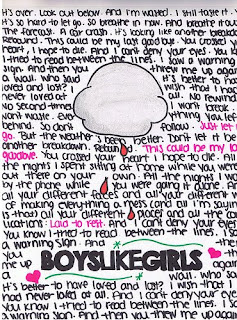 It's over. Look out below. And I'm wasted. I still taste it.
It's so hard to let go. So breathe in now. And breathe it out
The forecast. A car crash. It's looking like another breakdo
Rebound. This could be my last goodbye. You crossed y
heart, I hope to die. And I can't deny your eyes. You k
I tried to read between the lines. I saw a warning
sign. And then you threw me up again
a wall. Who said It's better to ha
loved and lost? I wish that I ha
never loved at all. And rewind
No second-time won't break.
can't waste. Ever ything you le
behind. So daring follow. Just let
go. But the weather's been better. Don't let it be
another breakdown. Rebound. This could be my la
goodbye. You crossed your heart I hope to die. All
the nights I spent sitting at home while you were
out there on your own. All the nights I wa
by the phone while you were going it alone. An
all your different faces and all your different w
of making everything a mess (and all I'm sayin
is that) all your different places and all the co
vacations. Laid to rest. And I can't deny your eyes
You know I tried to read between the lines. I so
a warning sign. And then
you me up BOYSLIKEGIRLS again
a wall. Who sa
It's better to have loved and lost? I wish that I
had never loved at all. And I can't deny your eye
You know I tried to read between the lines. I s
a warning sign. And then you threw me up agai